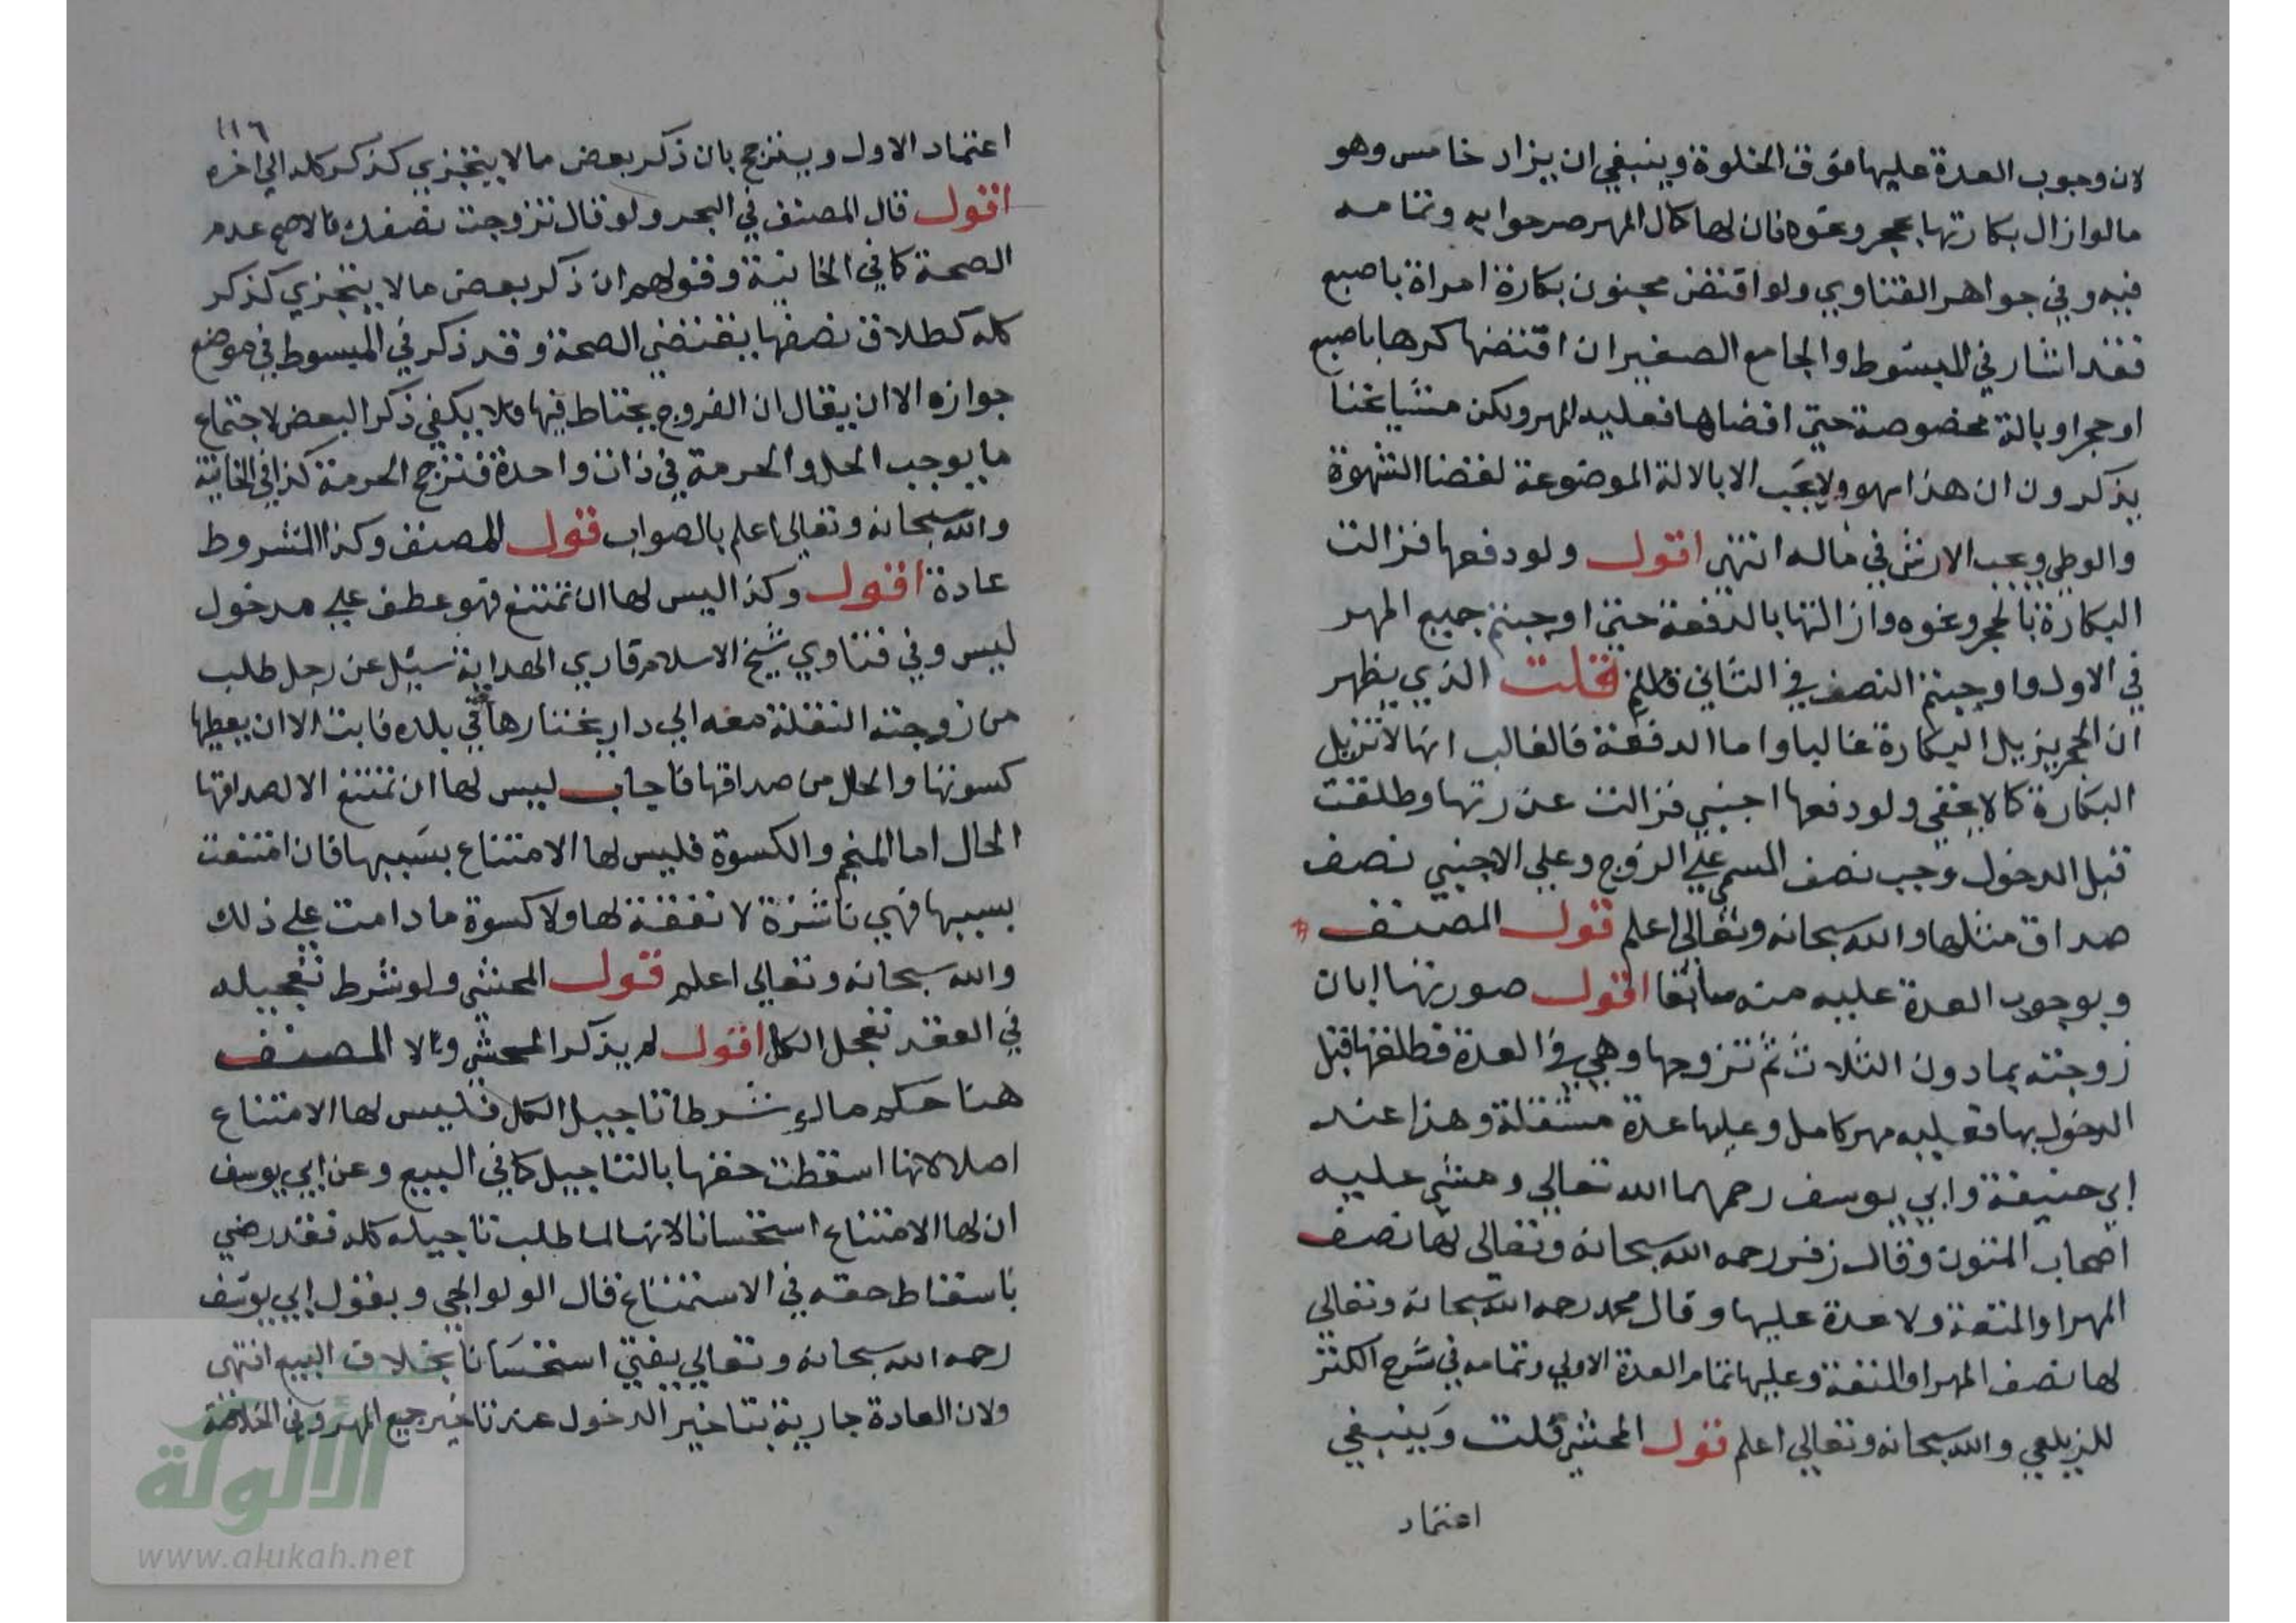 لان وجوب العدة عليها فوق الخلوة وينبغي ان يزاد خامس وهو
مالو ازال بكارتها بحجر ونحوه فان لها كمال المهر صرحوا به وتمامه
فيه وفي جواهر الفتاوي ولو اقتض مجنون بكارة امراة باصبع
فقد اشار في المبسوط والجامع الصغير ان اقتضها كرها باصبع
او حجر او بالة مخصوصة حتى افضاها فعليه المهر ولكن مشايخنا
يذكرون ان هذا سهو ولا يجب الا بالالة الموضوعة لقضا الشهوة
والوطي ويجب الارش في ماله انتهى اقول ولو دفعها فزالت
البكارة بالحجر ونحوه وازالتها بالدفعة حتى اوجبتم جميع المهر
في الاول واوجبتم النصف في الثاني قلت الذي يظهر
ان الحجر يزيل البكارة غالبا واما الدفعة فالغالب انها لا تزيل
البكارة كما لا يخفى ولو دفعها اجنبي فزالت عذرتها وطلقت
قبل الدخول وجب نصف المسمى على الزوج وعلى الاجنبي نصف
صداق مثلها والله سبحانه وتعالى اعلم قول المصنف
وبوجوب العدة عليه منه سابقا اقول صورتها ابان
زوجته بما دون الثلاث ثم تزوجها وهي في العدة فطلقها قبل
الدخول بها فعليه مهر كامل وعليها عدة مستقلة وهذا عند
ابي حنيفة وابي يوسف رحمهما الله تعالي ومشى عليه
اصحاب المتون وقال زفر رحمه الله سبحانه وتعالى لها نصف
المهر او المتعة ولا عدة عليها وقال محمد رحمه الله سبحانه وتعالي
لها نصف المهر او المتعة وعليها تمام العدة الاولي وتمامه في شرح الكنز
للزيلعي والله سبحانه وتعالي اعلم قول المحشي قلت وينبغي
اعتماد
١١٦
اعتماد الاول ويترجح بان ذكر بعض مالا يتجزي كذكر كله الي اخره
اقول قال المصنف في البحر ولو قال تزوجت نصفك فالاصح عدم
الصحة كما في الخانية وقولهم ان ذكر بعض مالا يتجزي كذكر
كله كطلاق نصفها يقتضي الصحة وقد ذكر في المبسوط في موضع
جوازه الا ان يقال ان الفروج يحتاط فيها فلا يكفي ذكر البعض لاجتماع
ما يوجب الحل والحرمة في ذات واحدة فترجح الحرمة كذا في الخانية
والله سبحانه وتعالي اعلم بالصواب قول المصنف وكذا المشروط
عادة اقول وكذا ليس لها ان تمتنع فهو عطف علي مدخول
ليس وفي فتاوي شيخ الاسلام قاري الهداية سئل عن رجل طلب
من زوجته النقلة معه الي دار يختارها في بلده فابت الا ان يعطيها
كسوتها والحال من صداقها فاجاب ليس لها ان تمتنع الا لصداقها
الحال اما المنجم والكسوة فليس لها الامتناع بسببها فان امتنعت
بسببها فهي ناشزة لا نفقة لها ولا كسوة ما دامت علي ذلك
والله سبحانه وتعالي اعلم قول المحشي ولو شرط تعجيله
في العقد تعجل الكل اقول لم يذكر المحشي ولا المصنف
هنا حكم ما لو شرطا تاجيل الكل فليس لها الامتناع
اصلا لانها اسقطت حقها بالتاجيل كما في البيع وعن ابي يوسف
ان لها الامتناع استحسانا لانه لما طلب تاجيله كله فقد رضي
باسقاط حقه في الاستمتاع قال الولوالجي وبقول ابي يوسف
رحمه الله سبحانه وتعالي يفتي استحسانا بخلاف البيع انتهى
ولان العادة جارية بتاخير الدخول عند تاخير جميع المهر وفي الخلاصة
الألوكة
www.alukah.net